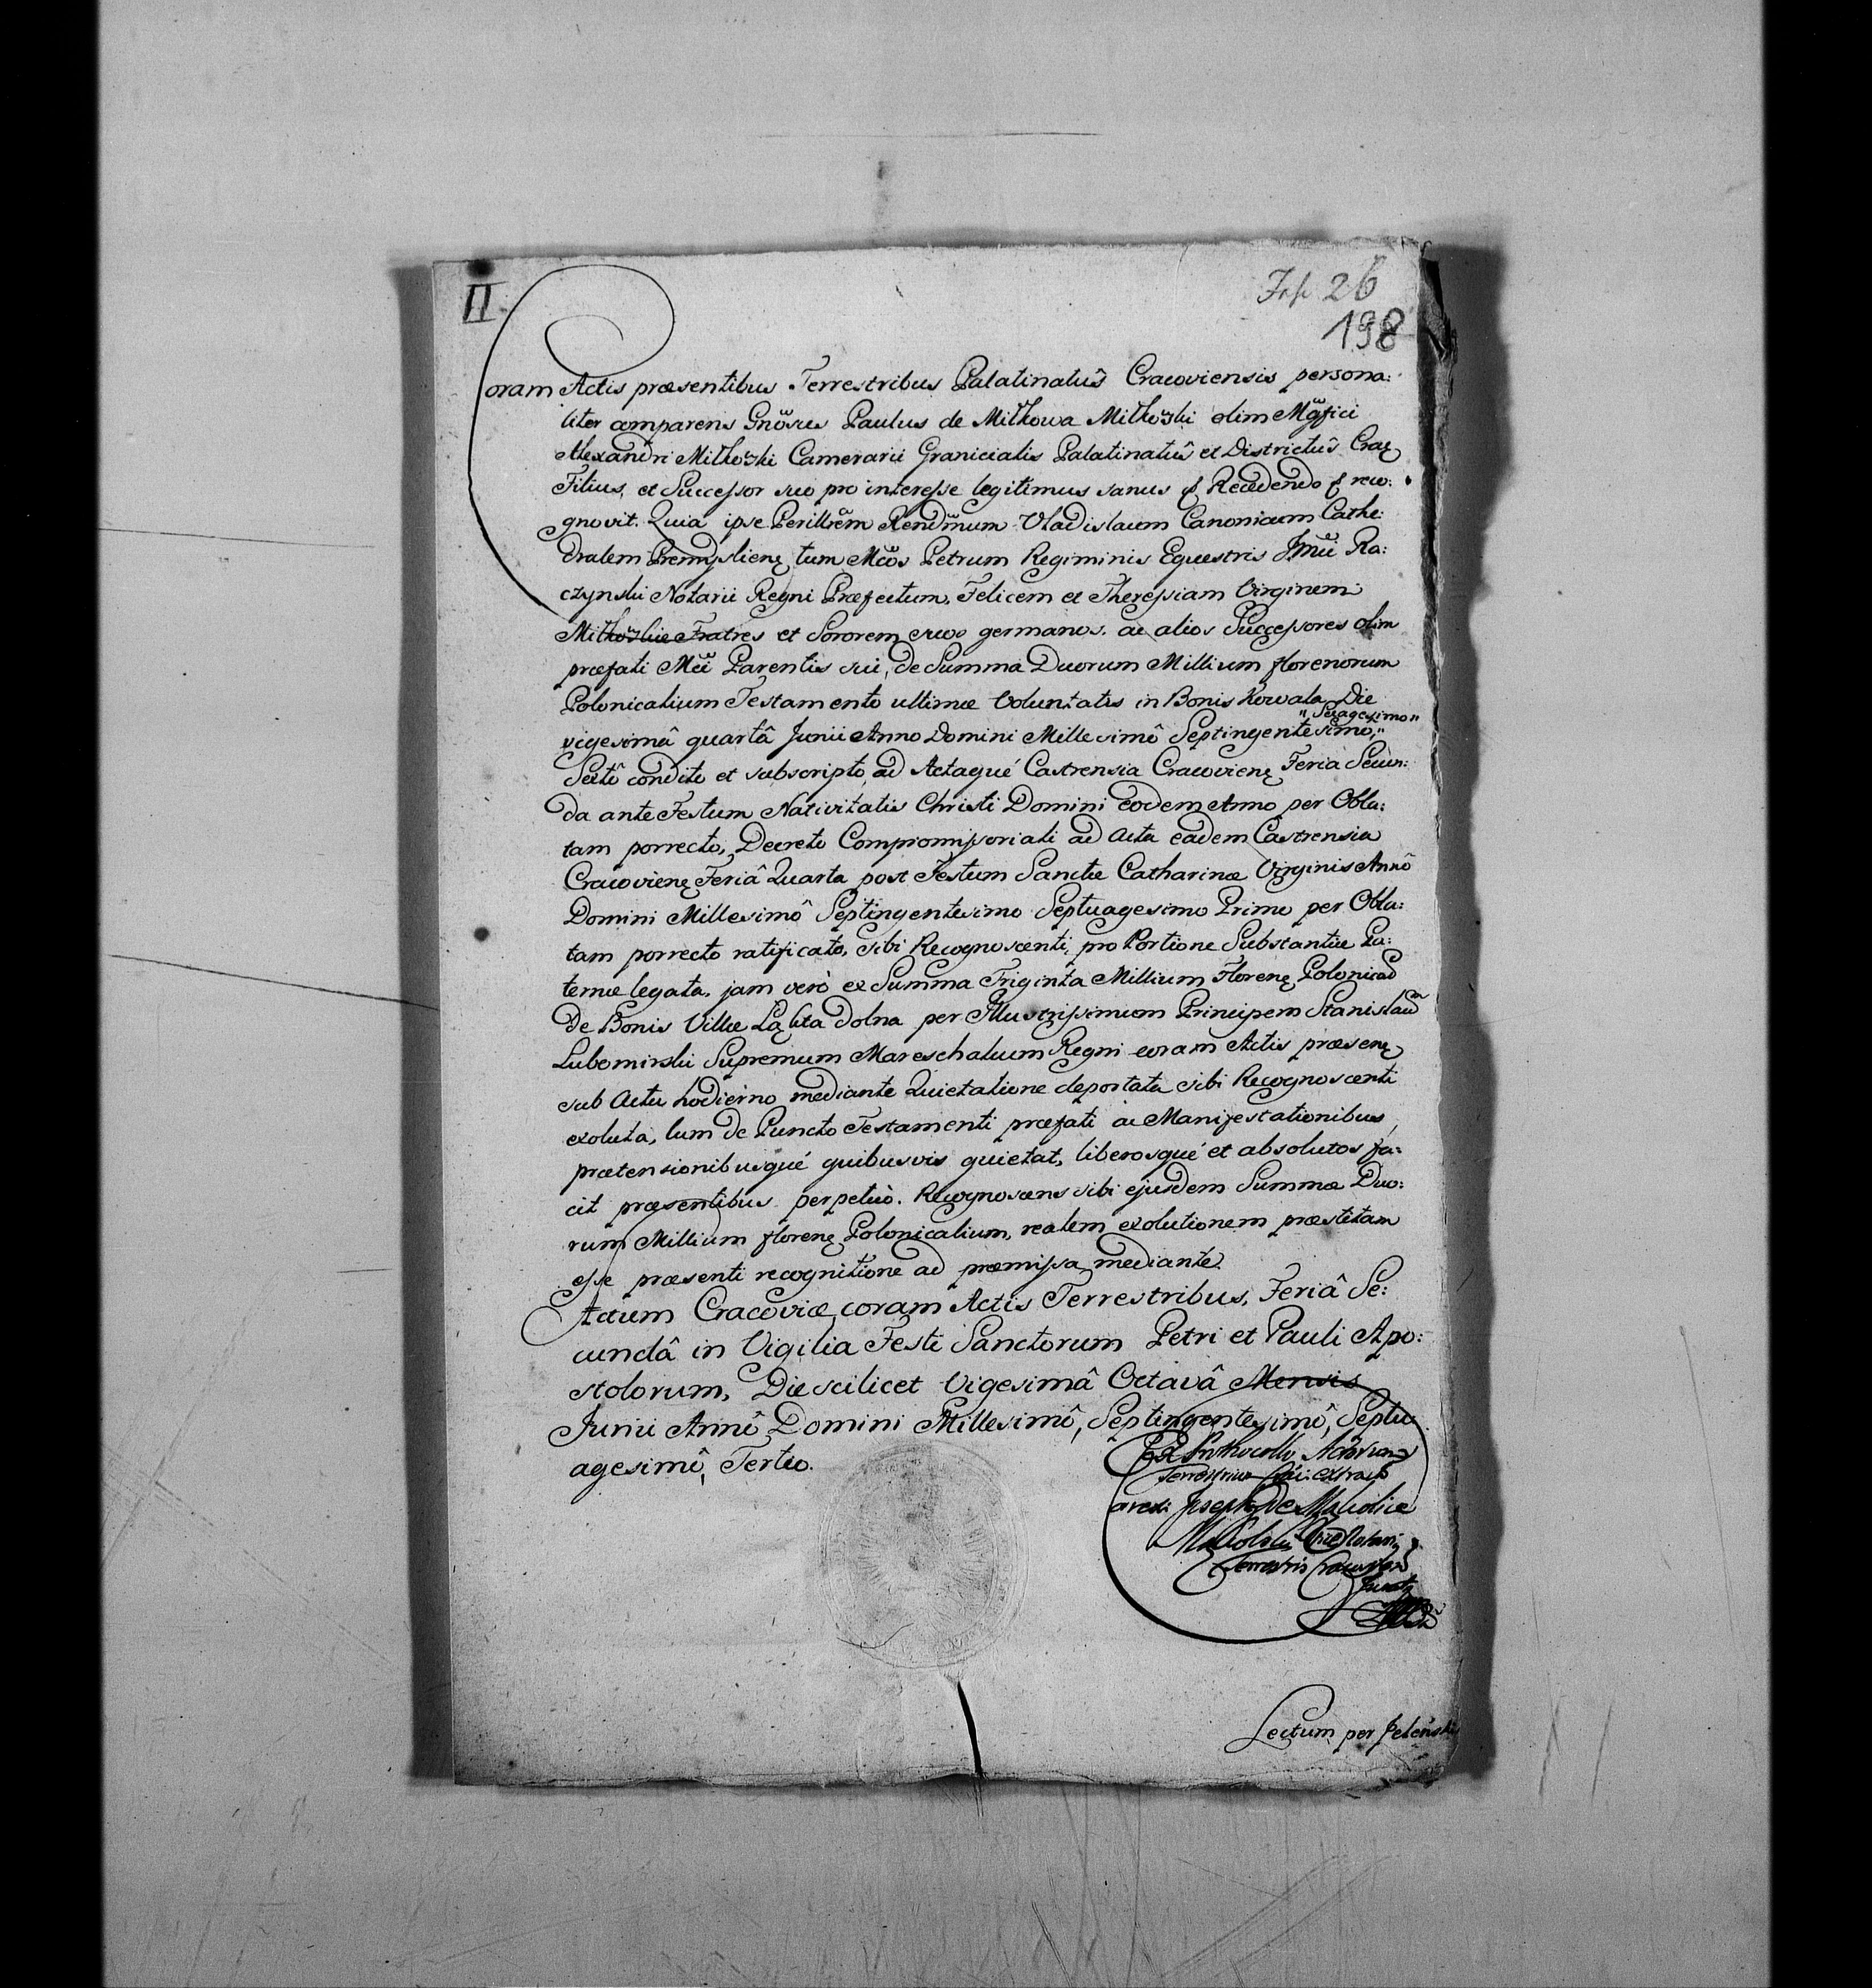 II
Fasc 26
198
Coram Actis præsentibus Terrestribus Palatinatûs Cracoviensis persona:
liter comparens Gnösus Paulus de Miłkowa Miłkowski olim Mgfici
Alexandri Miłkowski Camerarii Granicialis Palatinatûs et Districtûs Crac
Filius, et Successor suo pro interesse legitimus sanus & Recedendo & reco:
gnovit. Quia ipse Perillrem Rendmum Vladislaum Canonicum Cathe:
dralem Premyslien tum Mcos Petrum Regiminis Equestris Jmci Ra:
czynski Notarii Regni Præfectum, Felicem et Theressiam Virginem
Miłkowskie Fratres et Sororem suos germanos. ac alios Successores olim
præfati Mci Parentis sui, de Summa Duorum Millium florenorum
Polonicalium Testamento ultimæ Voluntatis in Bonis Kowala Die
vigesimâ quartâ Junii Anno Domini Millesimô Septingentesimo, "Sexagesimo"
Sextô condito et subscripto, ad Actaqué Castrensia Cracovien Feria Secun:
da ante Festum Nativitatis Christi Domini eodem Anno per Obla:
tam porrecto, Decreto Compromissoriali ad Acta eadem Castrensia
Cracovien Feriâ Quarta post Festum Sanctæ Catharinæ Virginis Annô
Domini Millesimô Septingentesimo Septuagesimo Primo per Obla:
tam porrecto ratificato, sibi Recognoscenti, pro Portione Substantiæ Pa:
ternæ legata, jam verò ex Summa Triginta Millium Floren Polonical
de Bonis Villæ Łąkta dolna per Illustrissimum Principem Stanislaum
Lubomirski Supremum Mareschalcum Regni coram Actis præsen
sub Actu hodierno mediante Quietatione deportata sibi Recognoscenti
exoluta, tum de Puncto Testamenti præfati ac Manifestationibus,
prætensionibusqué quibusvis quietat, liberosqué et absolutos fa:
cit præsentibus perpetuò. Recognoscens sibi ejusdem Summæ Duo:
rum Millium floren Polonicalium, realem exolutionem præstitam
esse præsenti recognitione ad præmissa mediante.
Actum Cracoviæ coram Actis Terrestribus, Feriâ Se:
cundâ in Vigilia Festi Sanctorum Petri et Pauli Apo:
stolorum, Die scilicet Vigesimâ Octavâ Mensis
Junii Annô Domini Millesimô, Septingentesimô, Septu
agesimô, Tertio.
Ex Prothocollo Actorum
Terrestrium extrac
Joseph De
Vice Notari
Terrestris
Lectum per Jeleński